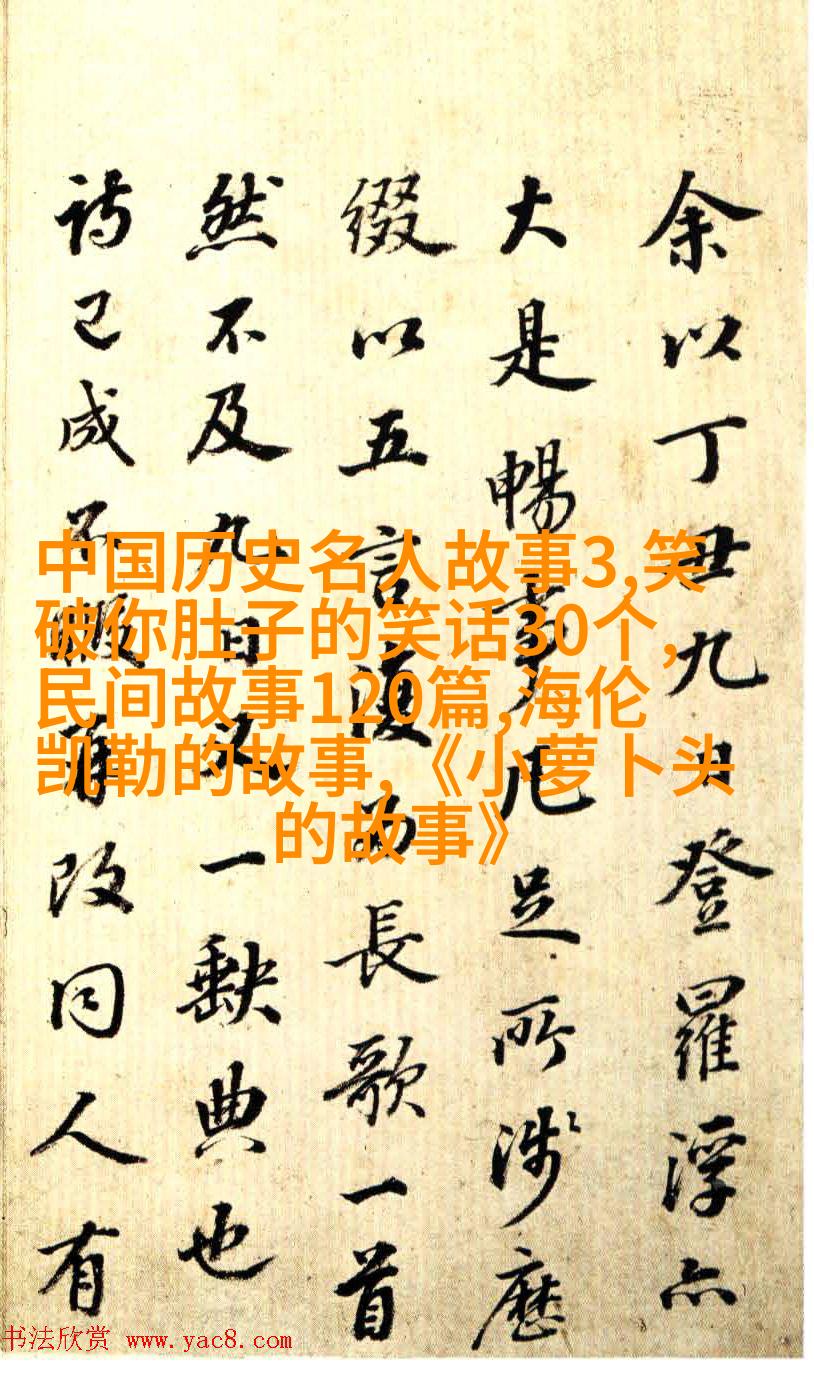 余以丁丑九日登羅浮亦
大是暢事凡足所涉歷
綴以五言復為長歌一首
然不及九日又一缺典也
詩已成不暇再改同人有
中国历史名人故事3,笑
破你肚子的笑话30个,
民间故事120篇,海伦
凯勒的故事,《小萝卜头
的故事》
书法欣赏 www.yac8.com